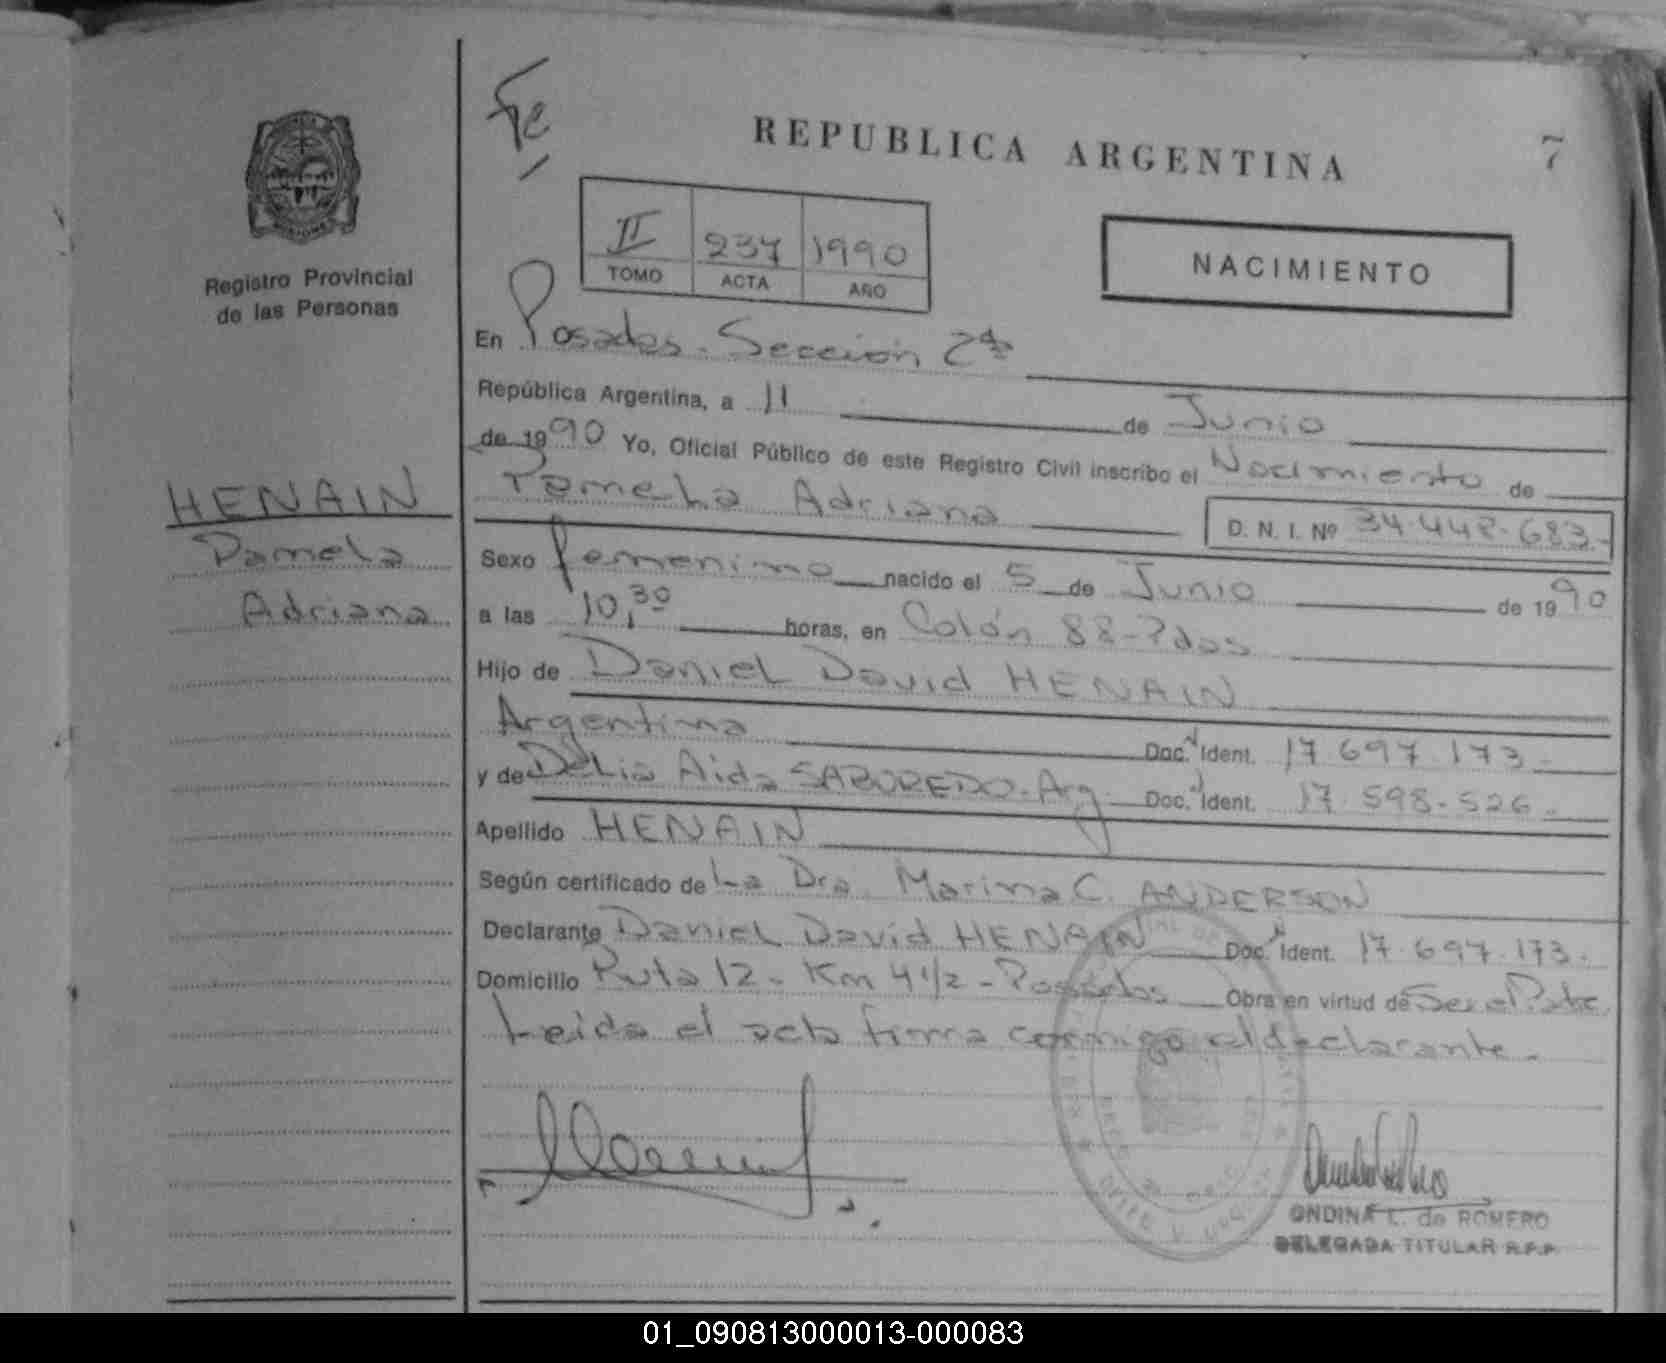 Fe
REPUBLICA ARGENTINA
7
Registro Provincial
de las Personas
II 237 1990
TOMO ACTA AÑO
NACIMIENTO
En Posadas - Sección 2da
República Argentina, a 11 de Junio
de 1990 Yo, Oficial Público de este Registro Civil inscribo el Nacimiento de
HENAIN
Pamela
Adriana
Pamela Adriana D. N. I. Nº 34.448.683.-
Sexo femenino nacido el 5 de Junio de 1990
a las 10,30 horas, en Colón 88-Pdas
Hijo de Daniel David HENAIN
Argentina Doc. Ident. 17.697.173.-
y de Delia Aida SABOREDO-Arg. Doc. Ident. 17.598.526.-
Apellido HENAIN
Según certificado de La Dra. Marina C. ANDERSON
Declarante Daniel David HENAIN Doc. Ident. 17.697.173.
Domicilio Ruta 12 - Km 4 1/2 - Posadas Obra en virtud de Ser el Padre
Leida el acta firma conmigo el declarante.-
ONDINA L. de ROMERO
DELEGADA TITULAR R.P.P.
01_090813000013-000083